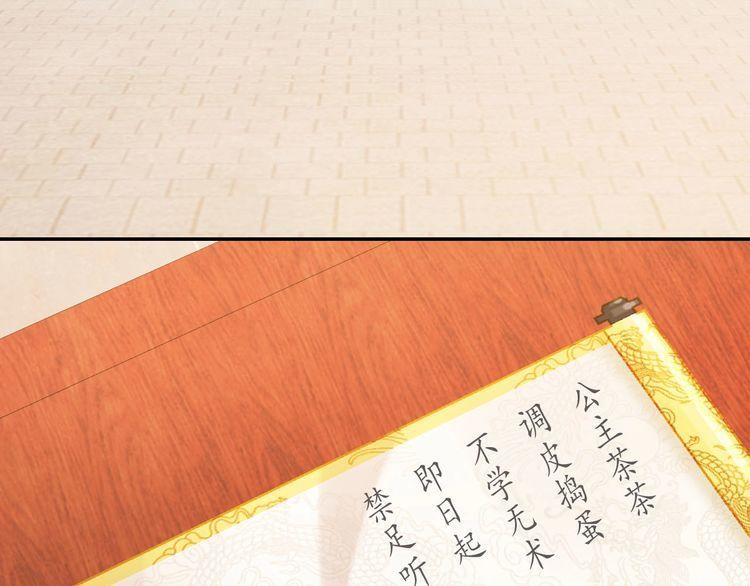 公主茶茶
调皮捣蛋
不学无术
即日起
禁足听